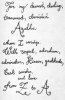 For my dearest, darling,
treasured, cherished
Agatha
whom I worship.
With respect, adoration,
admiration, kisses, gratitude,
best wishes,
and love
from Z to A